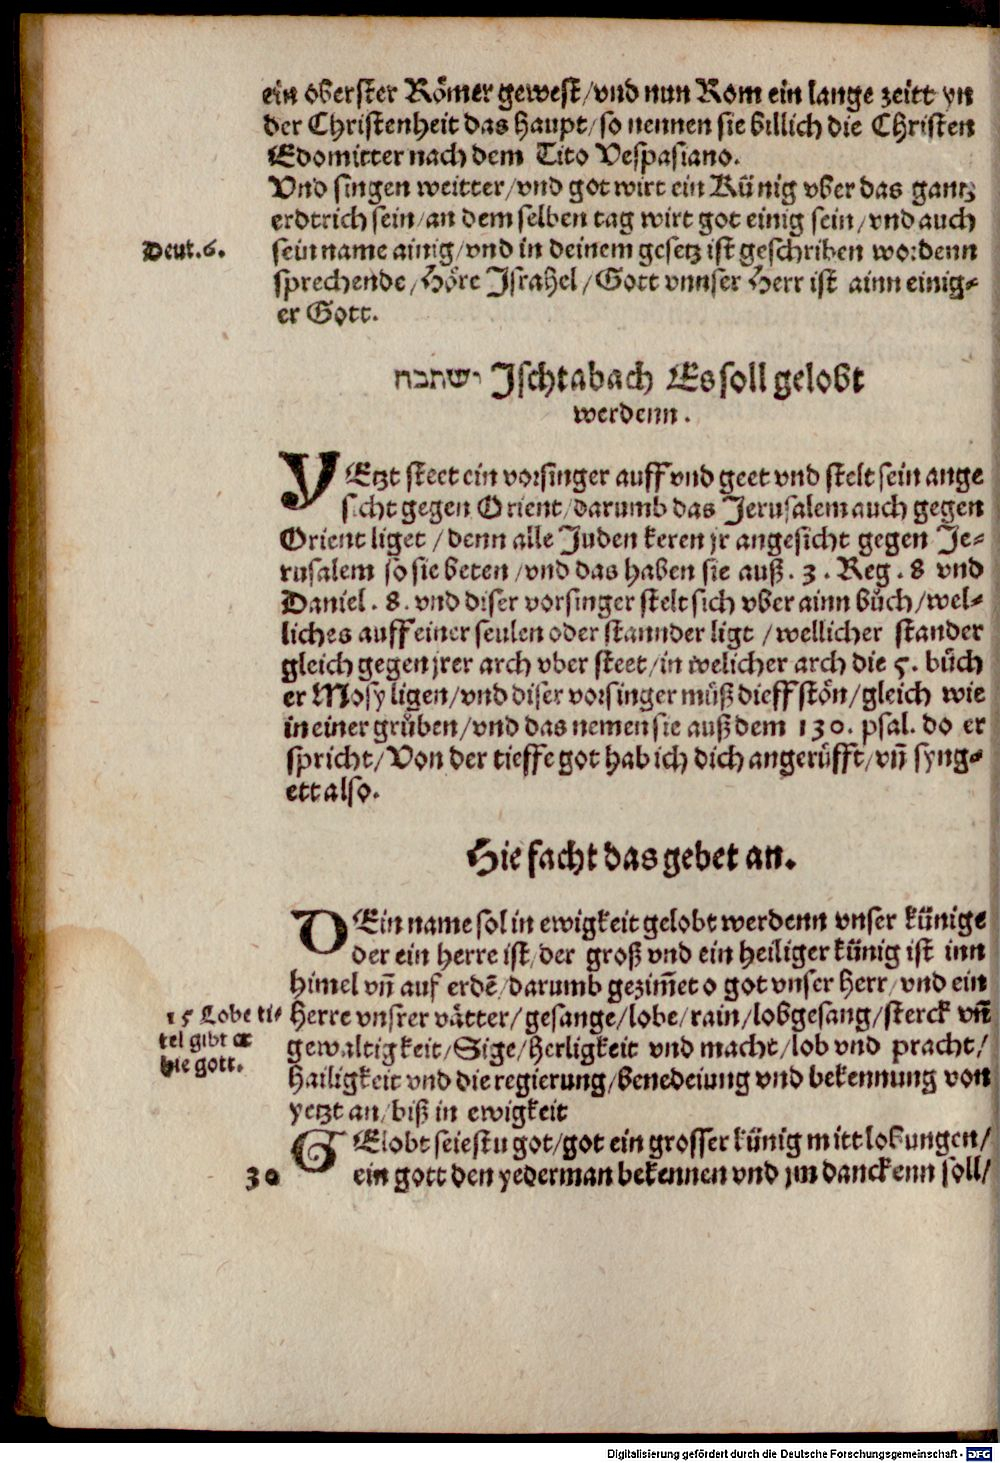 ein oberster Römer gewest/vnd nun Rom ein lange zeitt yn
der Christenheit das haupt/so nennen sie billich die Christen
Edomitter nach dem Tito Vespasiano.
Vnd singen weitter/vnd got wirt ein Künig vber das gantz
erdtrich sein/an dem selben tag wirt got einig sein/vnd auch
Deut.6.
sein name ainig/vnd in deinem gesetz ist geschriben wordenn
sprechende/Höre Israhel/Gott vnnser Herr ist ainn einig-
er Gott.
ישתבח Ischtabach Es soll gelobt
werdenn.
YEtzt steet ein vorsinger auff vnd geet vnd stelt sein ange
sicht gegen Orient/darumb das Jerusalem auch gegen
Orient liget/denn alle Juden keren jr angesicht gegen Je-
rusalem so sie beten/vnd das haben sie auß. 3. Reg. 8 vnd
Daniel. 8. vnd diser vorsinger stelt sich vber ainn bůch/wel-
liches auff einer seulen oder stannder ligt/wellicher stander
gleich gegen jrer arch vber steet/in welicher arch die 5. bůch
er Mosy ligen/vnd diser vorsinger můß dieff stön/gleich wie
in einer grůben/vnd das nemen sie auß dem 130. psal. do er
spricht/Von der tieffe got hab ich dich angerůfft/vñ syng-
ett also.
Hie facht das gebet an.
DEin name sol in ewigkeit gelobt werdenn vnser künige
der ein herre ist/der groß vnd ein heiliger künig ist inn
himel vñ auf erdē/darumb gezim̃et o got vnser herr/vnd ein
15 Lobe ti-
tel gibt er
hie gott.
herre vnsrer vätter/gesange/lobe/rain/lobgesang/sterck vñ
gewaltigkeit/Sige/herligkeit vnd macht/lob vnd pracht/
hailigkeit vnd die regierung/benedeiung vnd bekennung von
yetzt an/biß in ewigkeit
GElobt seiestu got/got ein grosser künig mitt lobungen/
30
ein gott den yederman bekennen vnd jm danckenn soll/
Digitalisierung gefördert durch die Deutsche Forschungsgemeinschaft - DFG